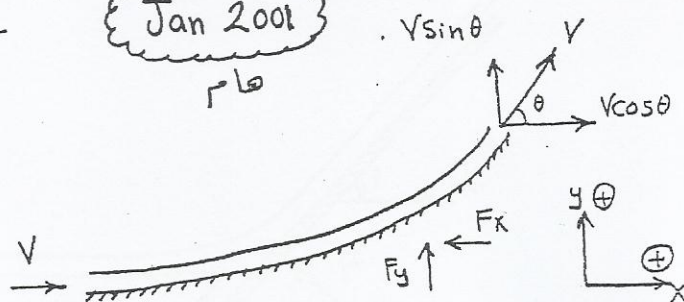 Jan 2001
هام
V sinθ
V
θ
V cosθ
V
Fx
Fy
y ⊕
⊕
x